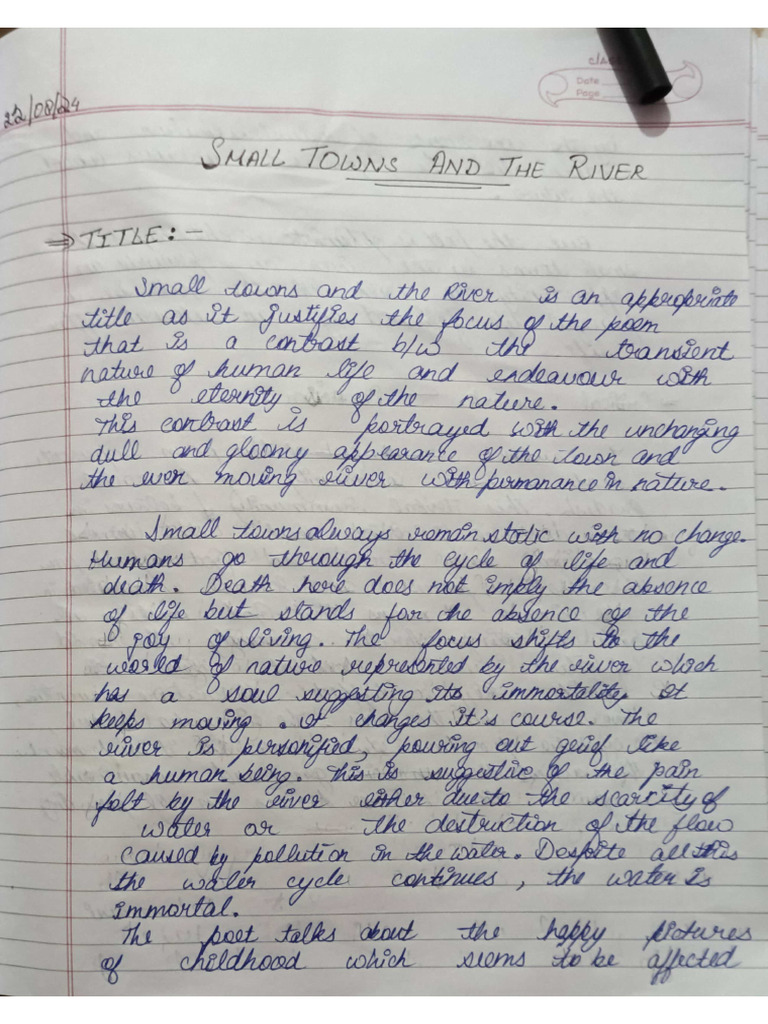 class
Date
Page
22/08/24
SMALL TOWNS AND THE RIVER
⇒ TITLE:-
Small towns and the River is an appropriate
title as it justifies the focus of the poem
that is a contrast b/w the transient
nature of human life and endeavour with
the eternity of the nature.
This contrast is portrayed with the unchanging
dull and gloomy appearance of the town and
the ever moving river with permanance in nature.
Small towns always remain static with no change.
Humans go through the cycle of life and
death. Death here does not imply the absence
of life but stands for the absence of the
joy of living. The focus shifts to the
world of nature represented by the river which
has a soul suggesting its immortality. It
keeps moving. It changes it's course. The
river is personified, pouring out grief like
a human being. This is suggestive of the pain
felt by the river either due to the scarcity of
water or the destruction of the flow
caused by pollution in the water. Despite all this
the water cycle continues, the water is
immortal.
The poet talks about the happy pictures
of childhood which seems to be affected